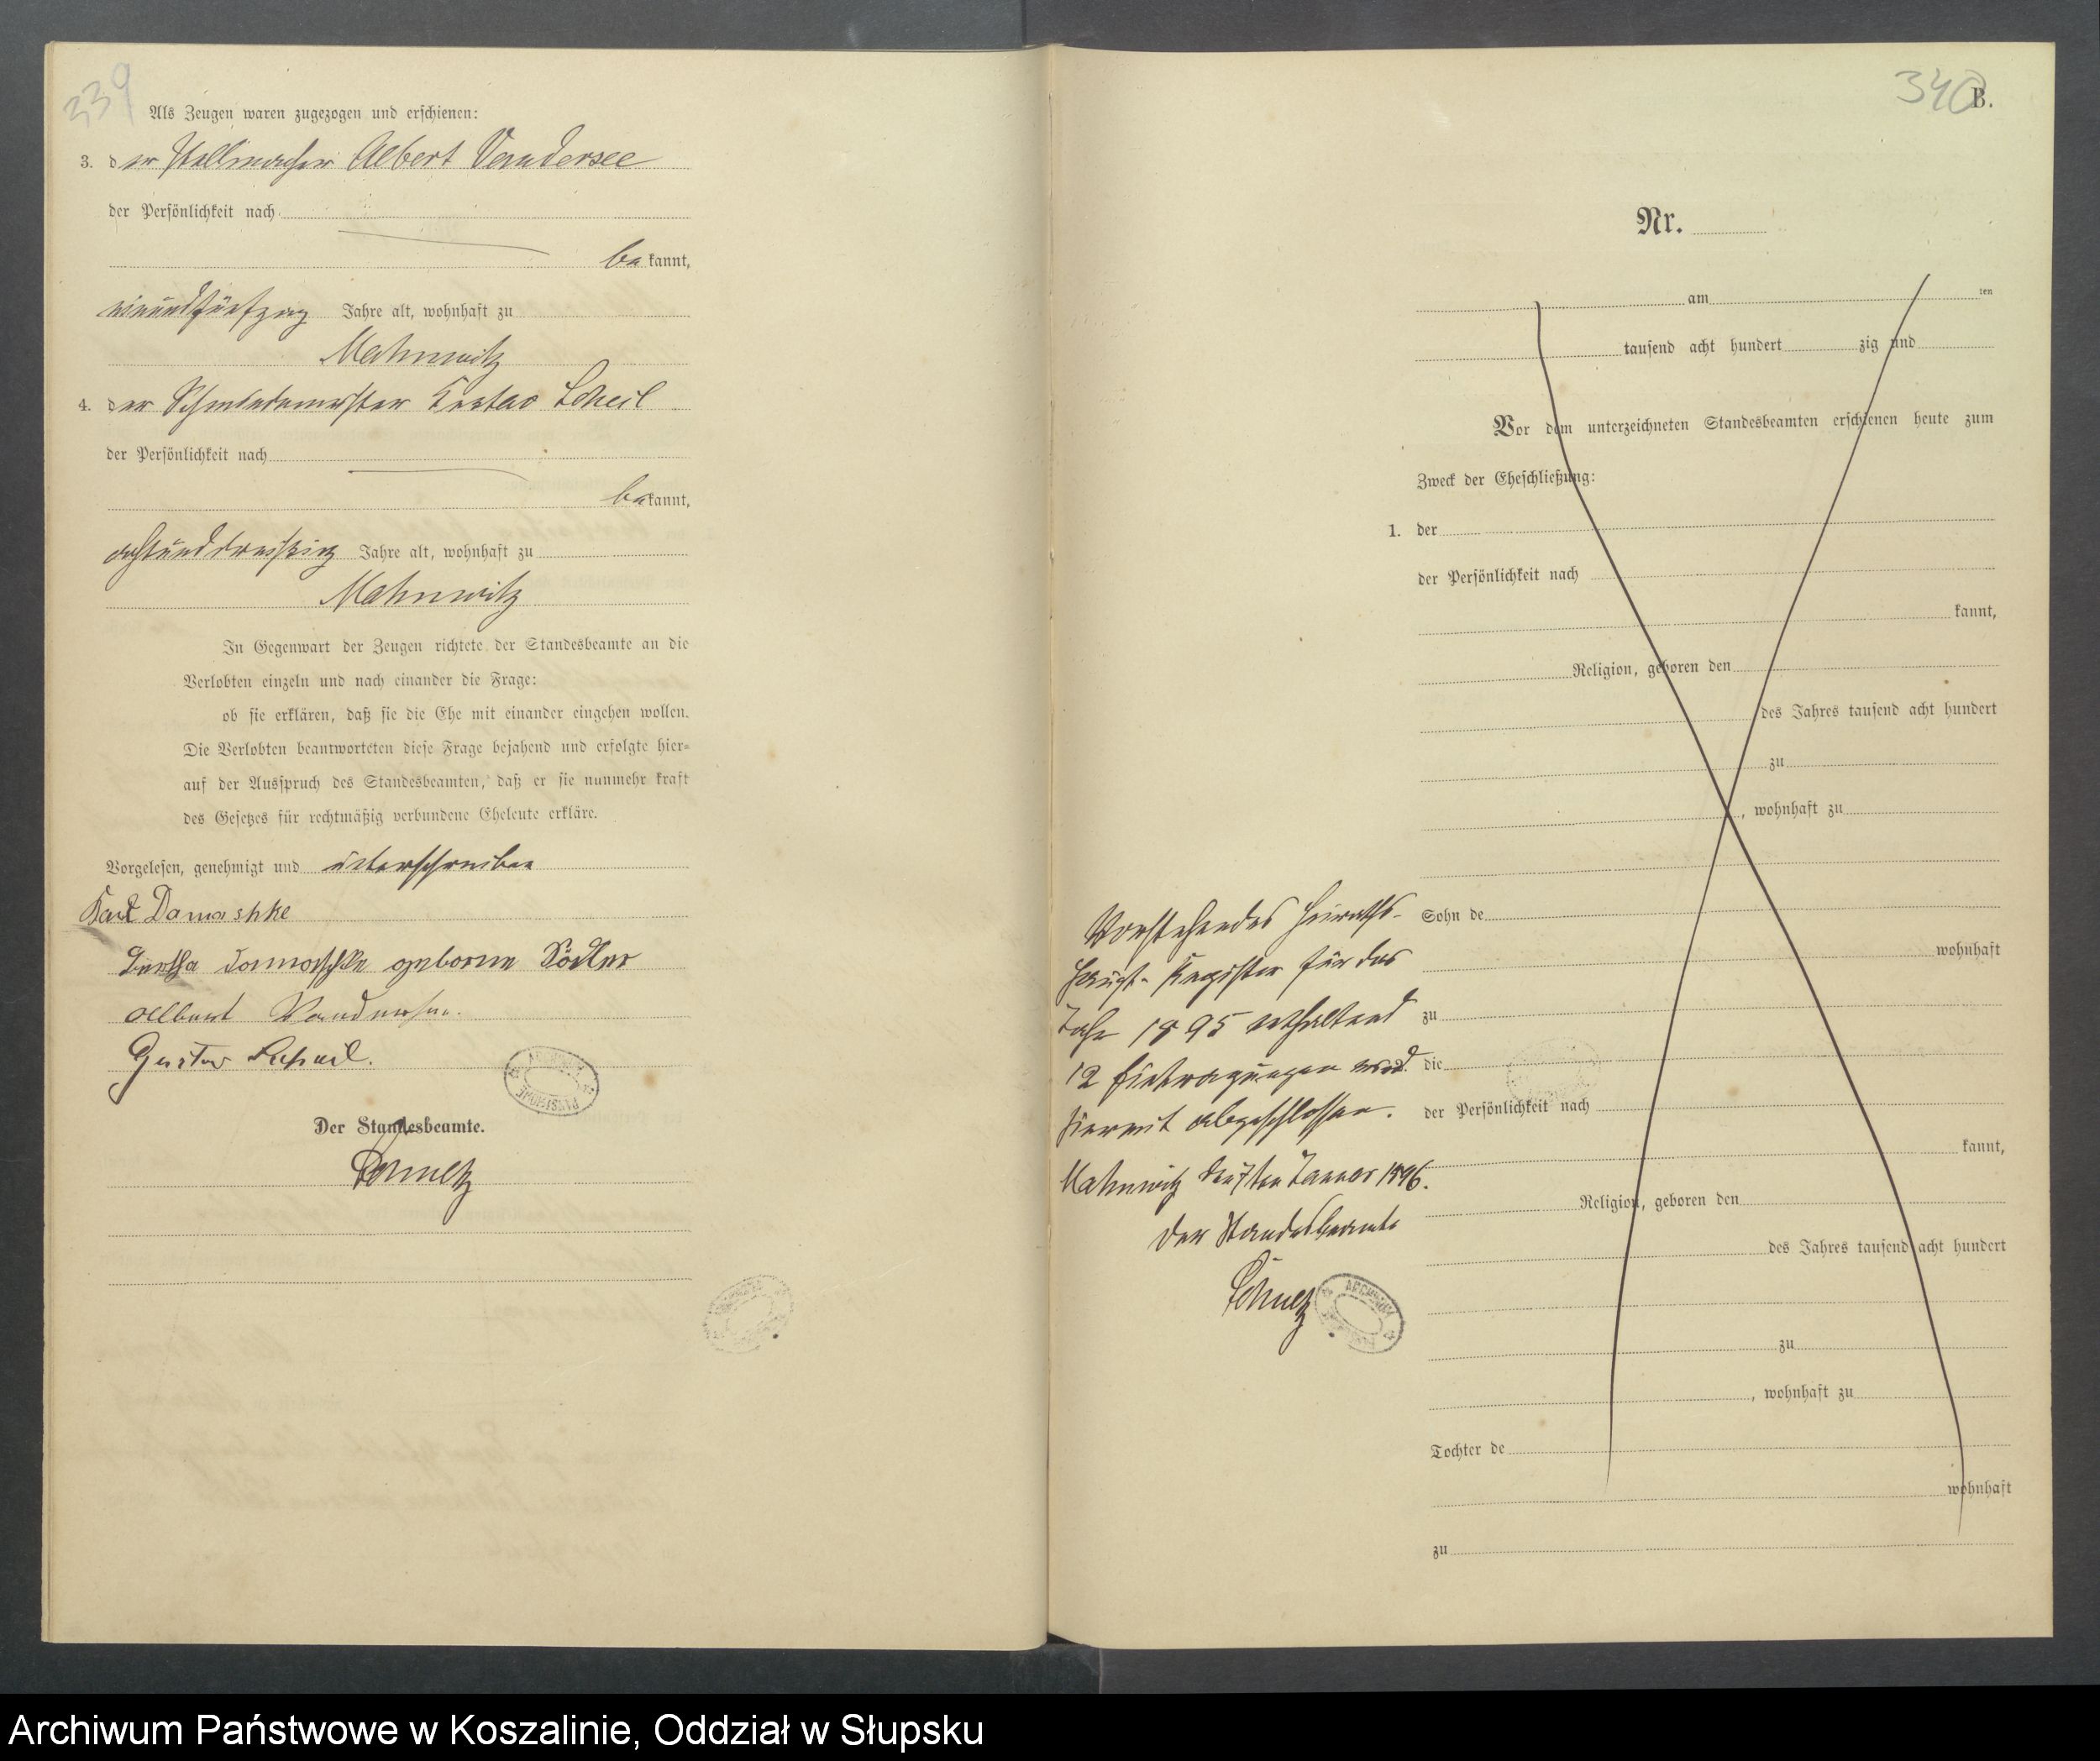 339
Als Zeugen waren zugezogen und erschienen:
3. der Stellmacher Albert Vandersee
der Persönlichkeit nach
bekannt,
einundfünfzig Jahre alt, wohnhaft zu
Mahnwitz
4. der Schmiedemeister Gustav Scheil
der Persönlichkeit nach
bekannt,
achtunddreißig Jahre alt, wohnhaft zu
Mahnwitz
In Gegenwart der Zeugen richtete der Standesbeamte an die
Verlobten einzeln und nach einander die Frage:
ob sie erklären, daß sie die Ehe mit einander eingehen wollen.
Die Verlobten beantworteten diese Frage bejahend und erfolgte hier-
auf der Ausspruch des Standesbeamten, daß er sie nunmehr kraft
des Gesetzes für rechtmäßig verbundene Eheleute erkläre.
Vorgelesen, genehmigt und unterschrieben
Karl Damaschke
Bertha Damaschke geborne
Albert Vandersee.
Gustav Scheil.
Der Standesbeamte.
340
B.
Nr.
am ten
tausend acht hundert zig und
Vor dem unterzeichneten Standesbeamten erschienen heute zum
Zweck der Eheschließung:
1. der
der Persönlichkeit nach
kannt,
Religion, geboren den
des Jahres tausend acht hundert
zu
, wohnhaft zu
Sohn de
wohnhaft
zu
die
der Persönlichkeit nach
kannt,
Religion, geboren den
des Jahres tausend acht hundert
zu
, wohnhaft zu
Tochter de
wohnhaft
zu
Vorstehendes Heiraths-
Haupt-Register für das
Jahr 1895 enthaltend
12 Eintragungen wird
hiermit abgeschlossen.
Mahnwitz den 7ten Januar 1896.
Der Standesbeamte
Archiwum Państwowe w Koszalinie, Oddział w Słupsku